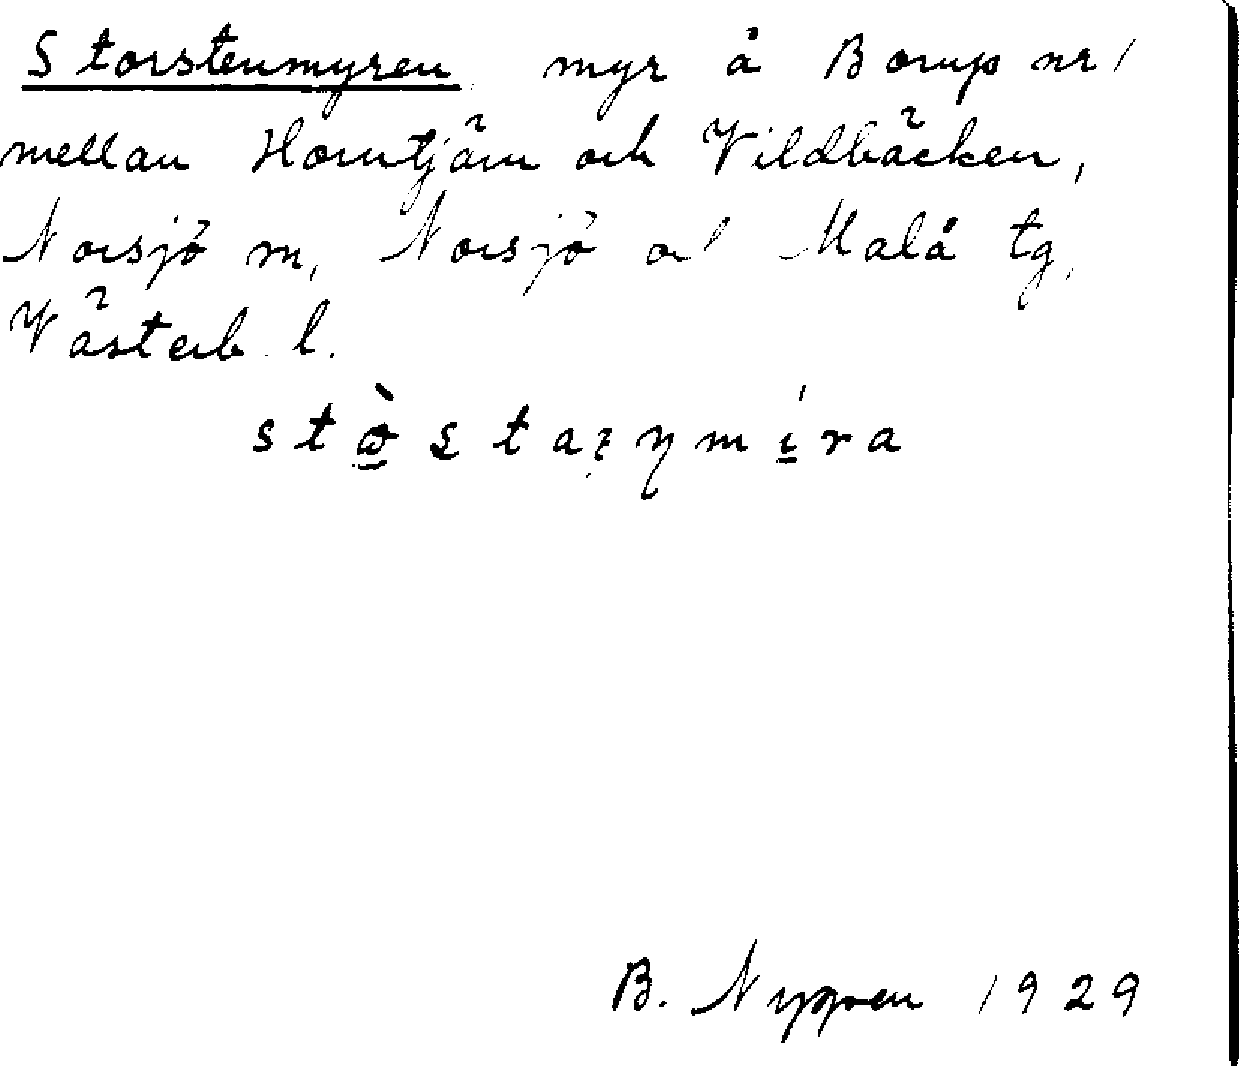 Storstenmyren myr å Borup nr 1
mellan Horntjärn och Vildbäcken,
Norsjö sn, Norsjö o Malå tg,
Västerb l.
B. Nygren 1929